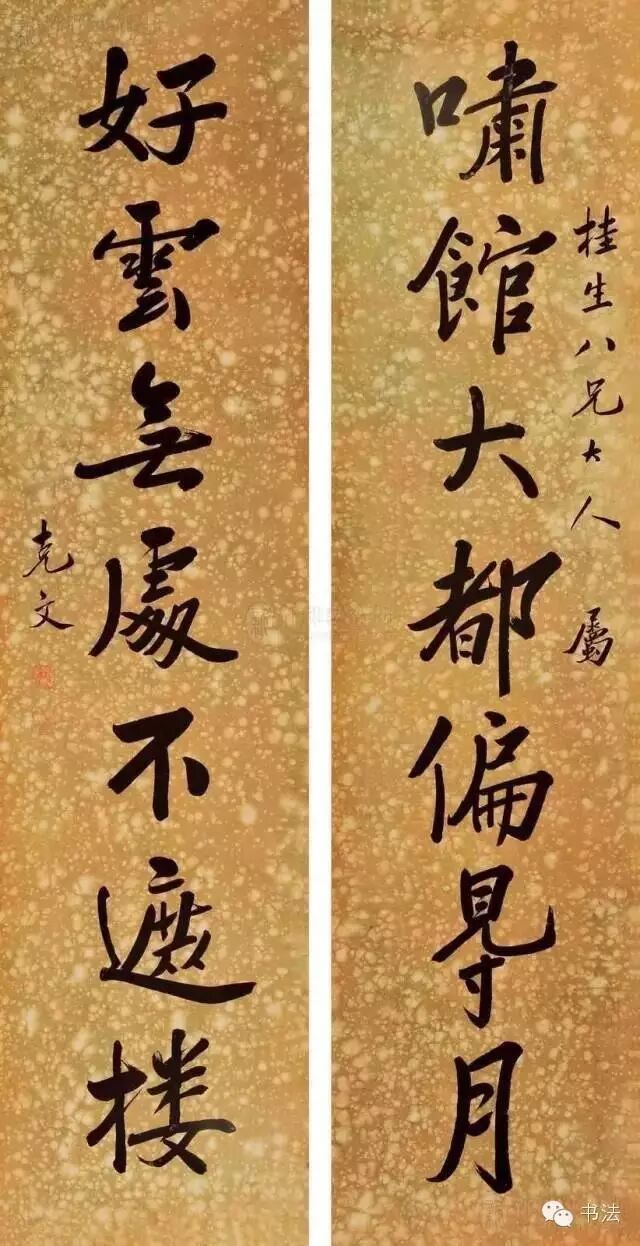 桂生八兄大人 屬
嘯館大都偏䙷月
好雲無處不遮楼
克文
书法